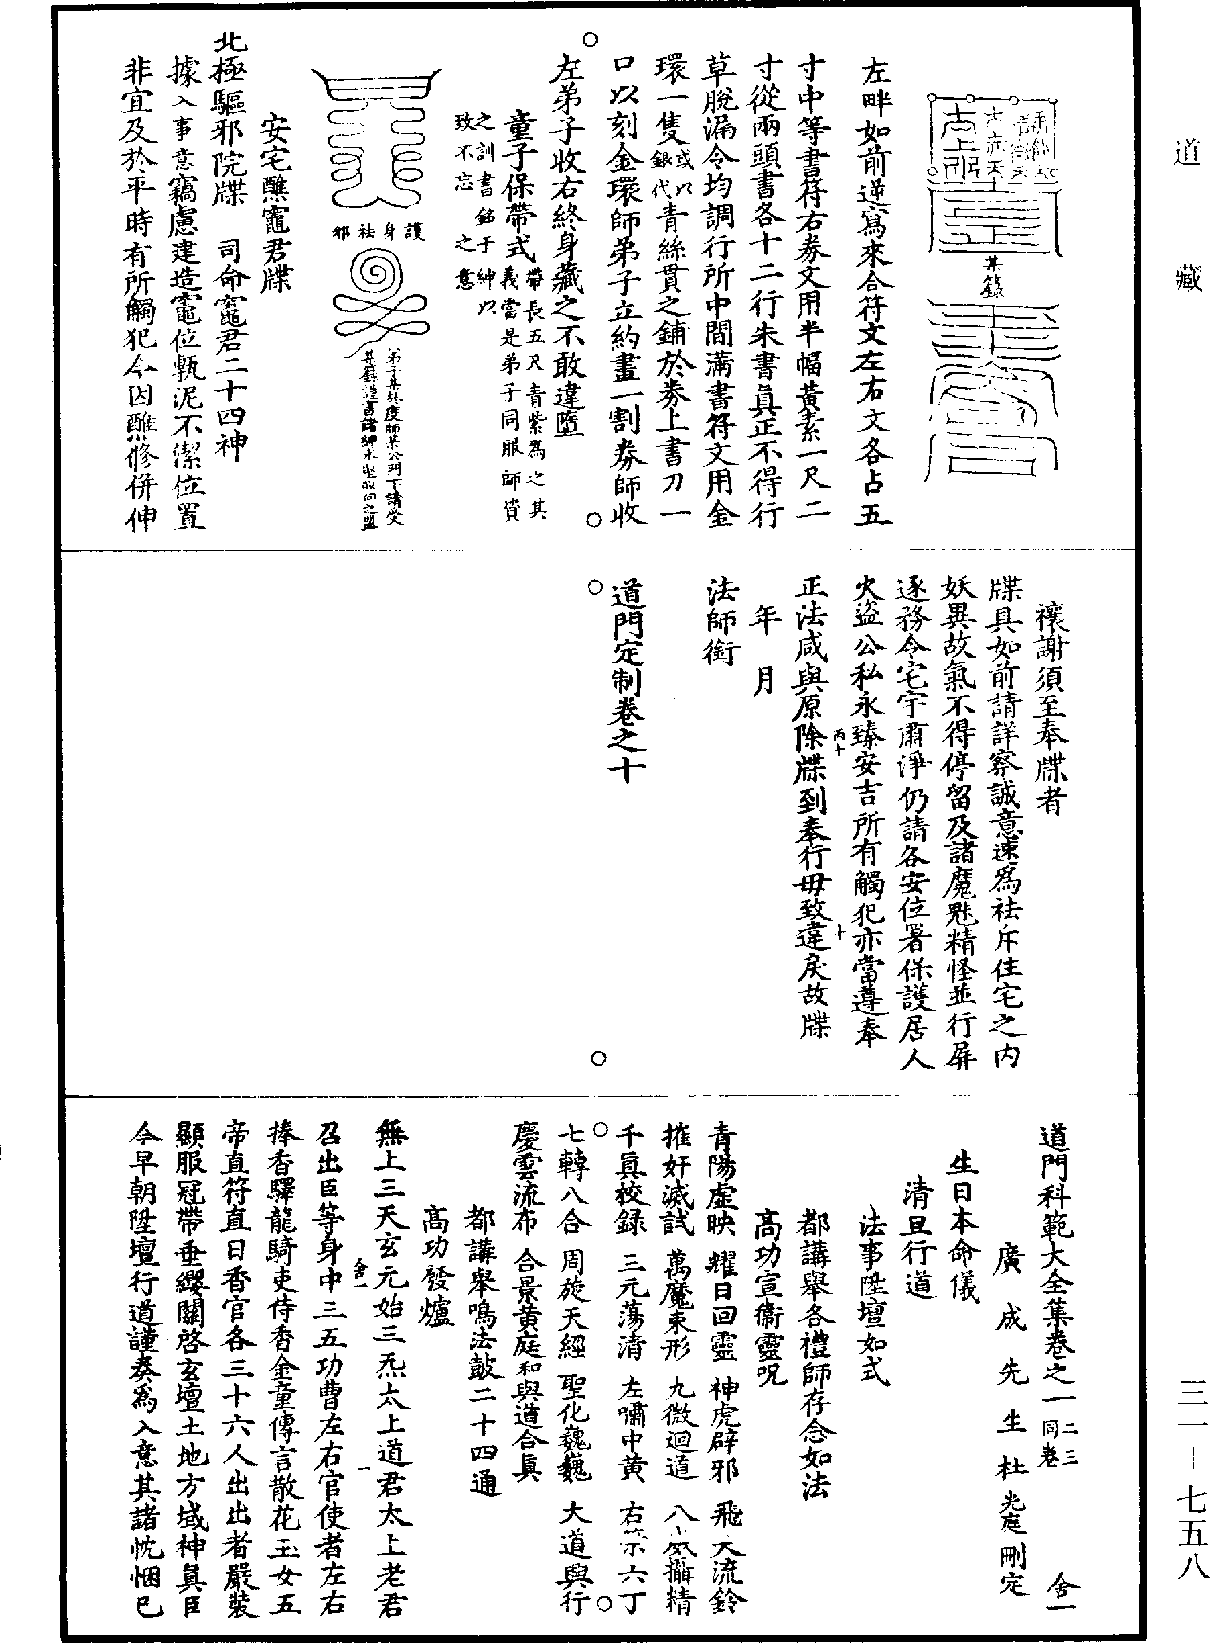 道藏
三一—七五八
某籙
左畔如前逆寫來合符文左右文各占五
寸中等書符右券文用半幅黃素一尺二
寸從兩頭書各十二行朱書真正不得行
草脫漏令均調行所中間滿書符文用金
環一隻或以銀代青絲貫之鋪於券上書刀一
口以刻金環師弟子立約畫一割券師收
左弟子收右終身藏之不敢違墮
童子保帶式帶長五尺青紫為之其義當是弟子同服師資
之訓書銘于紳以致不忘之意
護身祛邪
安宅醮竈君牒
北極驅邪院牒　司命竈君二十四神
據入事意竊慮建造竈位甎泥不潔位置
非宜及於平時有所觸犯今因醮修併伸
禳謝須至奉牒者
牒具如前請詳察誠意速為祛斥住宅之內
妖異故氣不得停留及諸魔魅精怪並行屏
逐務令宅宇肅淨仍請各安位署保護居人
火盜公私永臻安吉所有觸犯亦當遵奉
正法咸與原除牒到奉行毋致違戾故牒
年　月
法師銜
道門定制卷之十
道門科範大全集卷之一二三同卷　舍一
廣成先生杜光庭刪定
生日本命儀
清旦行道
法事陞壇如式
都講舉各禮師存念如法
高功宣衛靈呪
青陽虛映　耀日回靈　神虎辟邪　飛天流鈴
摧奸滅試　萬魔束形　九微迴道　八威攝精
千真校錄　三元蕩清　左嘯中黃　右策六丁
七轉八合　周旋天經　聖化巍巍　大道與行
慶雲流布　合景黃庭和與道合真
都講舉鳴法鼓二十四通
高功發爐
無上三天玄元始三炁太上道君太上老君
召出臣等身中三五功曹左右官使者左右
捧香驛龍騎吏侍香金童傳言散花玉女五
帝直符直日香官各三十六人出出者嚴裝
顯服冠帶垂纓關啓玄壇土地方域神真臣
今早朝陞壇行道謹奏為入意其諸忱悃已